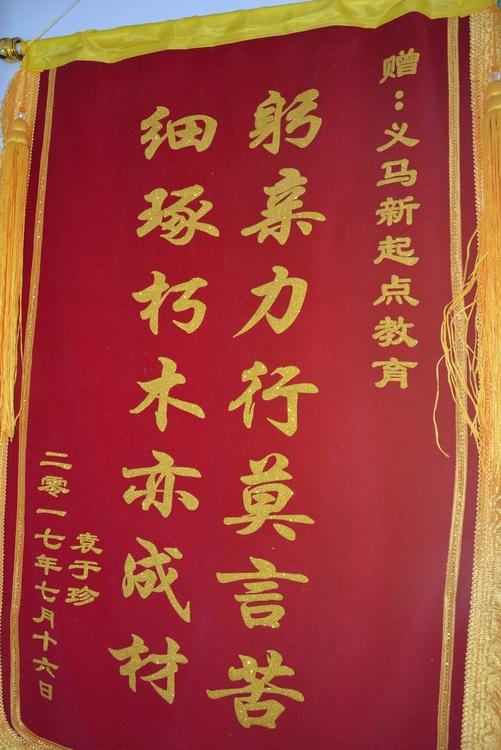 赠：义马新起点教育
躬亲力行莫言苦
细琢朽木亦成材
袁于珍
二零一七年七月十六日